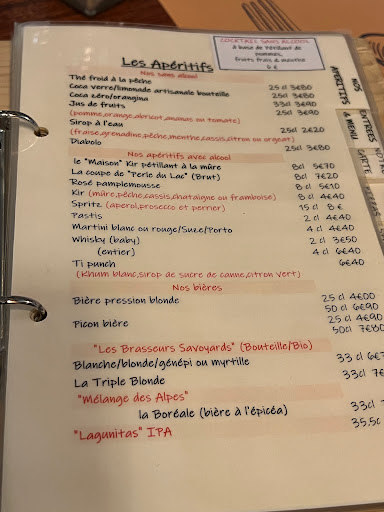 COCKTAIL SANS ALCOOL
à base de Pétillant de
pommes,
fruits frais & menthe
6 €
Les Apéritifs
Nos sans alcool
Thé froid à la pêche 25 cl 3€80
Coca verre/limonade artisanale bouteille 25 cl 3€80
Coca zéro/orangina 33cl 3€90
Jus de fruits 25 cl 3€90
(pomme,orange,abricot,ananas ou tomate)
Sirop à l'eau 25cl 2€20
(fraise,grenadine,pêche,menthe,cassis,citron ou orgeat)
Diabolo 25cl 3€80
Nos apéritifs avec alcool
le "Maison" Kir pétillant à la mûre 8cl 5€70
La coupe de "Perle du Lac" (Brut) 8cl 7€20
Rosé pamplemousse 8 cl 5€10
Kir (mûre,pêche,cassis,chataigne ou framboise) 8 cl 4€40
Spritz (aperol,prosecco et perrier) 15 cl 8 €
Pastis 2 cl 4€40
Martini blanc ou rouge/Suze/Porto 4 cl 4€40
Whisby (baby) 2 cl 3€50
(entier) 4 cl 6€40
Ti punch 6€40
(Rhum blanc,sirop de sucre de canne,citron vert)
Nos bières
Bière pression blonde 25 cl 4€00
50 cl 6€90
Picon bière 25 cl 4€90
50cl 7€80
"Les Brasseurs Savoyards" (Bouteille/Bio)
Blanche/blonde/génépi ou myrtille 33 cl
La Triple Blonde 33cl
"Mélange des Alpes"
la Boréale (bière à l'épicéa) 33cl
"Lagunitas" IPA 35.5c
NOS
APERITIFS
ENTREES
& MENU
NOTRE
CARTE